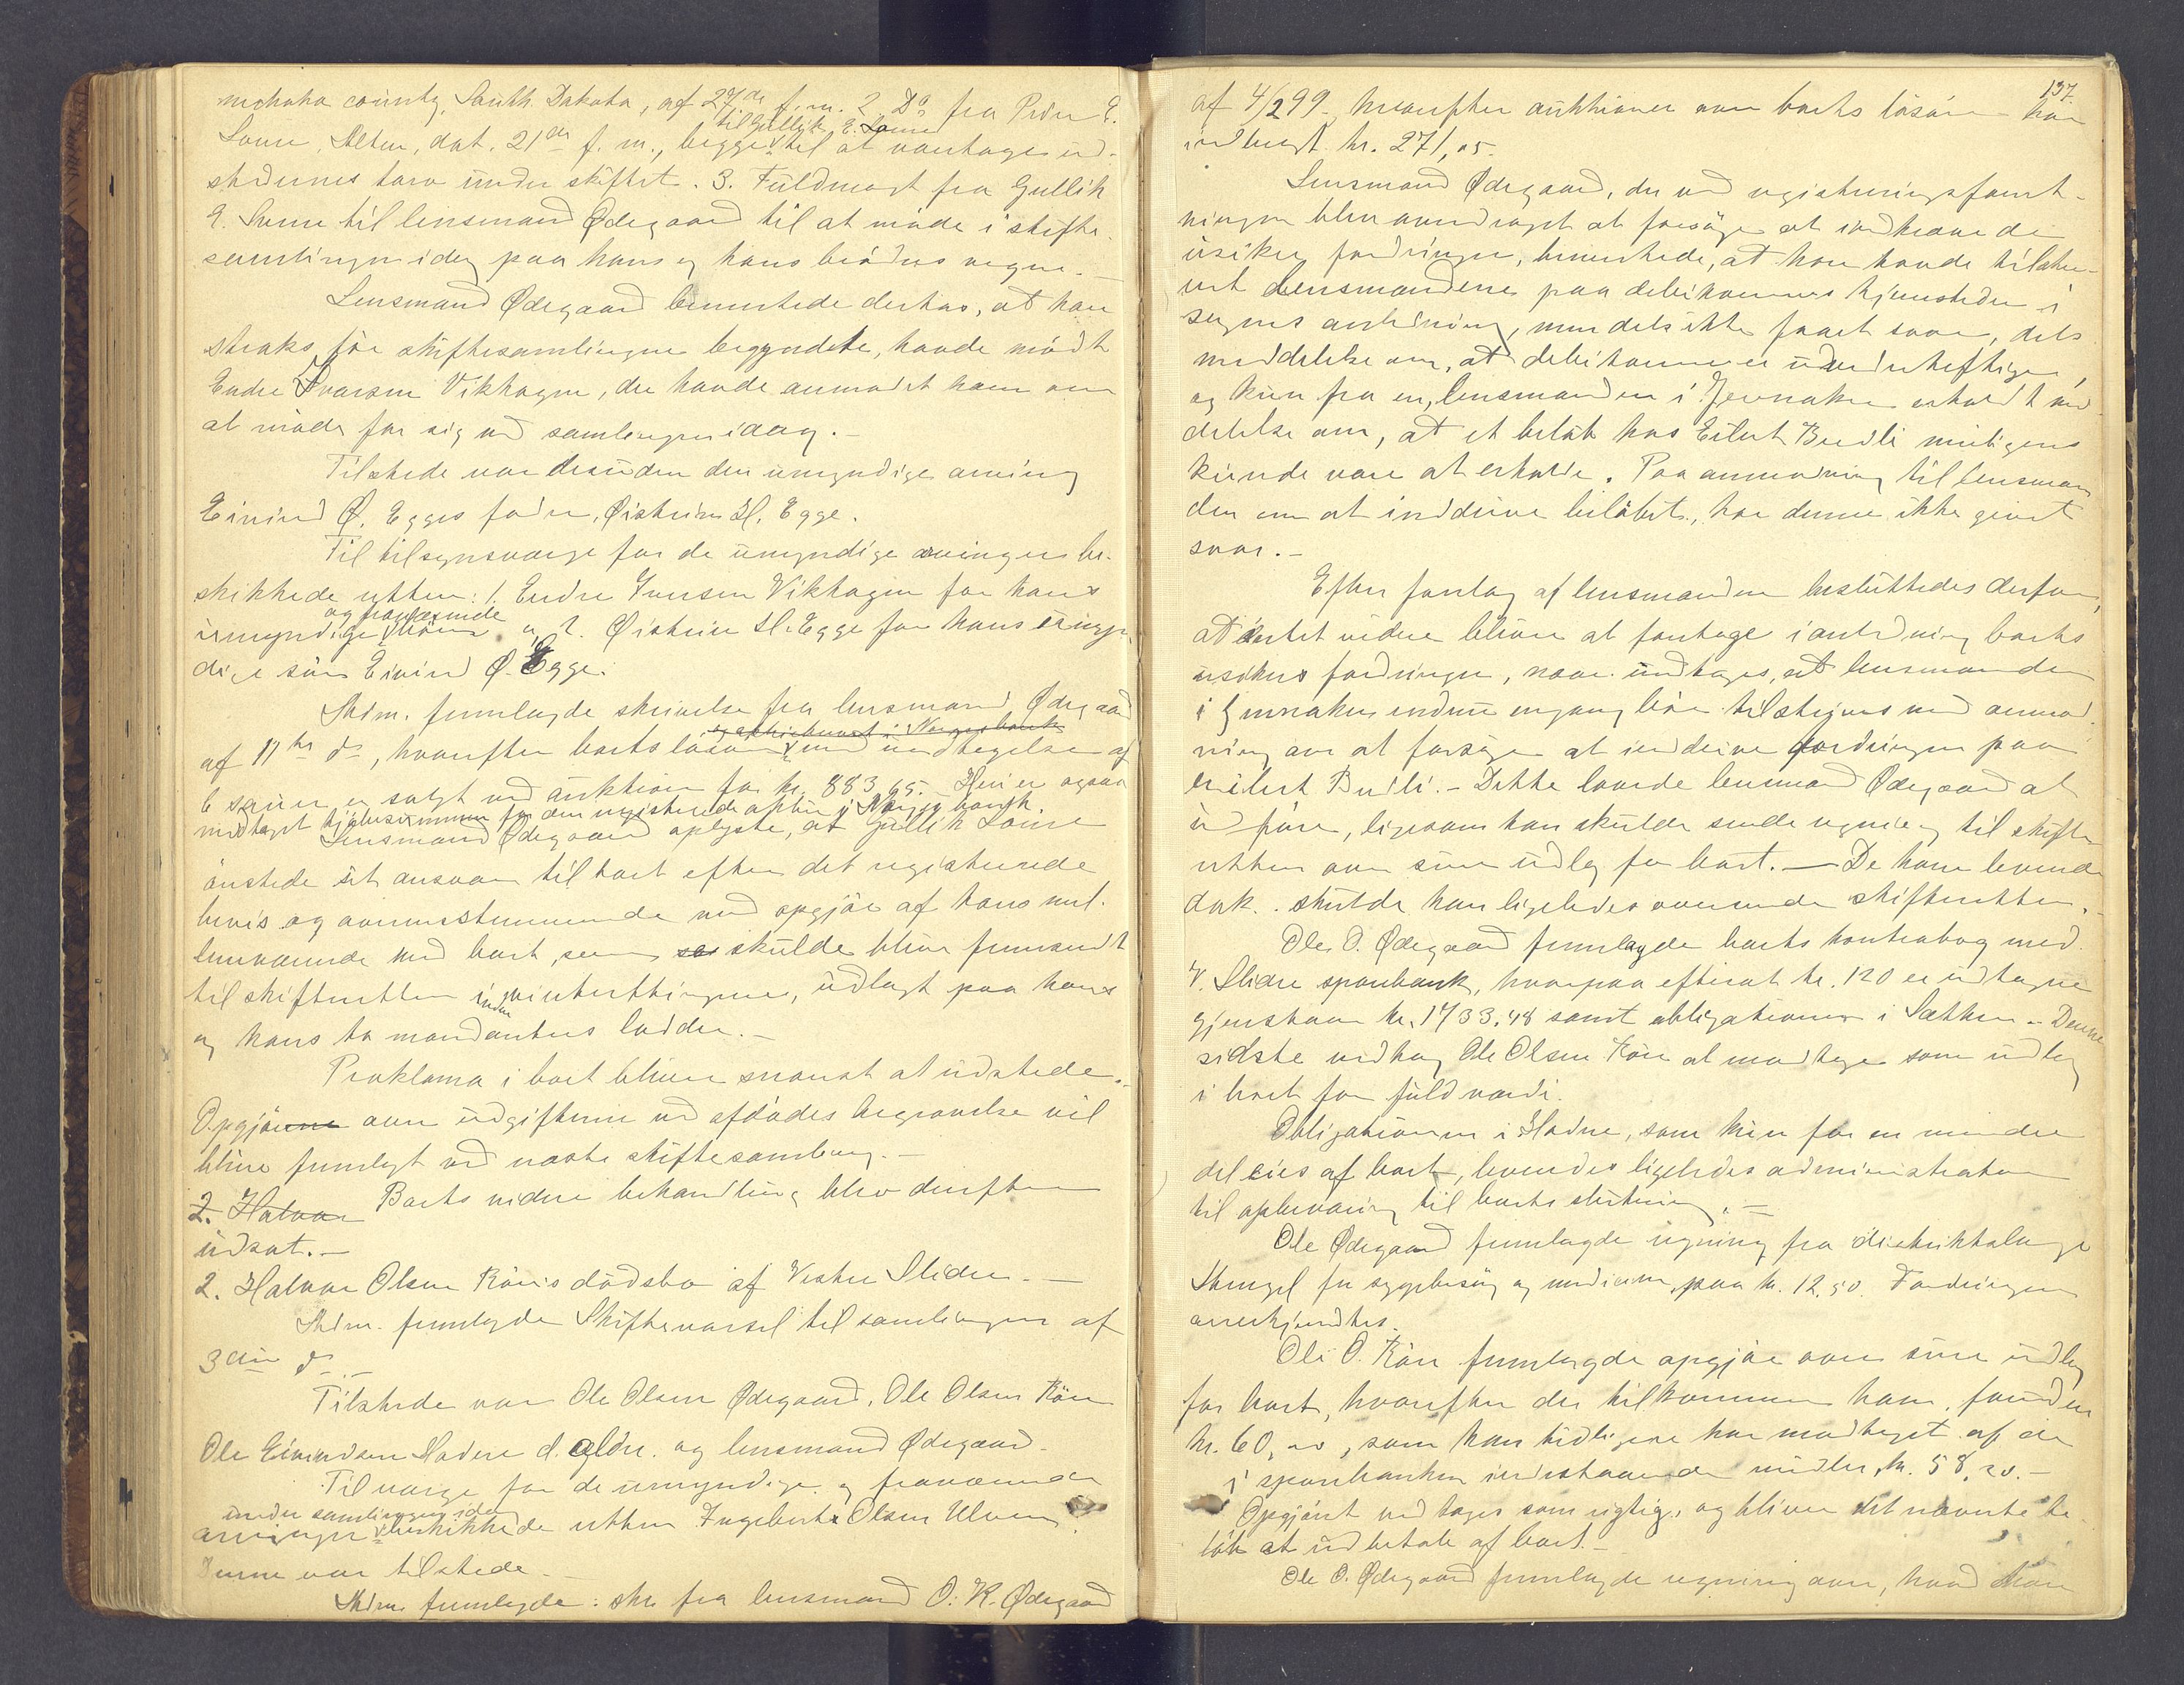 nehaha county, South Dakota, af 27de f. m. 2. Do fra Peder E.
til Gullik E. Lome
Lome, Alten, dat. 21de f. m., begge til at varetage ud-
stedernes tarv under skiftet. 3. Fuldmagt fra Gullik
E. Lome til lensmand Ødegaard til at møde i skifte-
samlingen idag paa hans og hans brødres vegne.–
Lensmand Ødegaard bemerkede derhos, at han
straks før skiftesamlingen begyndte, havde mødt
Endre Ivarsen Vikhagen, der havde anmodet ham om
at møde for sig ved samlingen idag.–
Tilstede var desuden den umyndige arving
Eivind Ø. Egges fader, Øistein H. Egge.
Til tilsynsværge for de umyndige arvinger be-
skikkede retten: 1. Endre Iversen Vikhagen for hans
og fraværende
umyndige børn og 2. Øistein H. Egge for hans umyn-
dige søn Eivind Ø. Egge.
Adm. fremlagde skrivelse fra lensmand Ødegaard
og aktiebrevet i Norges bank
af 11te ds, hvorefter boets løsøre med undtagelse af
6 sauer er solgt ved auktion for kr. 883,65. Heri er ogsaa
medtaget kjøbesummen for den registrerede aktie i Norges bank.
Lensmand Ødegaard oplyste, at Gullik Lome
ønskede sit ansvar til boet efter det registrerede
bevis og overensstemmende med opgjør af hans mel-
lemværende med boet, som skulde blive fremsendt
til skifteretten inden vintertingene, udlagt paa hans
og hans to mandanters lodder.–
Proklama i boet bliver snarest at udstede.–
Opgjør over udgifterne ved afdødes begravelse vil
blive fremlagt ved næste skiftesamling.–
2. Halvor Boets videre behandling blev derefter
udsat.–
2. Halvor Olsen Røns dødsbo af Vestre Slidre.–
Adm. fremlagde Skiftevarsel til samlingen af
3die ds.–
Tilstede var Ole Olsen Ødegaard, Ole Olsen Røn
Ole Eivindsen Hadne d. ældre. og lensmand Ødegaard.
Til værge for de umyndige og fraværende
under samlingen idag
arvinger beskikkede retten Ingebert Olsen Ulven.
Denne var tilstede.–
Adm. fremlagde: skr. fra lensmand O. K. Ødegaard
137.
af 4/2 99, hvorefter auktionen over boets løsøre har
indbragt kr. 271,05.
Lensmand Ødegaard, der ved registreringsforret-
ningen blev overdraget at forsøge at indkræve de
usikre fordringer, bemerkede, at han havde tilskre-
vet lensmændene paa debitorernes hjemsteder i
sagens anledning, men dels ikke faaet svar, dels
meddelelse om, at debitorerne er uvederheftige,
og kun fra en, lensmanden i Jevnaker erholdt med-
delelse om, at et beløb hos Eilert Budli muligens
kunde være at erholde. Paa anmodning til lensman-
den om at inddrive beløbet, har denne ikke givet
svar.–
Efter forslag af lensmanden besluttedes derfor,
at intet videre bliver at foretage i anledning boets
usikre fordringer, naar undtages, at lensmanden
i Jevnaker endnu engang bør tilskrives med anmod-
ning om at forsøge at inddrive fordringen paa
Eilert Budli.– Dette lovede lensmand Ødegaard at
udføre, ligesom han skulde sende regning til skifte-
retten over sine udlæg for boet.– De ham leverede
dok. skulde han ligeledes oversende skifteretten.–
Ole O. Ødegaard fremlagde boets kontrabog med
V. Slidre sparebank, hvorpaa efterat kr. 120 er udtagne
gjenstaar kr. 1733,48 samt obligationen i Sætten.– Denne
sidste vedtog Ole Olsen Røn at modtage som udlæg
i boet for fuld værdi.
Obligationen i Hadne, som kun for en mindre
del eies af boet, leveredes ligeledes administrator
til opbevaring til boets slutning.–
Ole Ødegaard fremlagde regning fra distriktslæge
Stengel for sygebesøg og medicin, paa kr. 12,50. Fordringen
anerkjendtes.
Ole O. Røn fremlagde opgjør over sine udlæg
for boet, hvorefter der tilkommer ham, foruden
kr. 60,00, som han tidligere har modtaget af de
i sparebanken indestaaende midler, kr. 58,20.–
Opgjøret vedtoges som rigtig, og bliver det nævnte be-
løb at udbetale af boet.–
Ole O. Ødegaard fremlagde regning over, hvad han